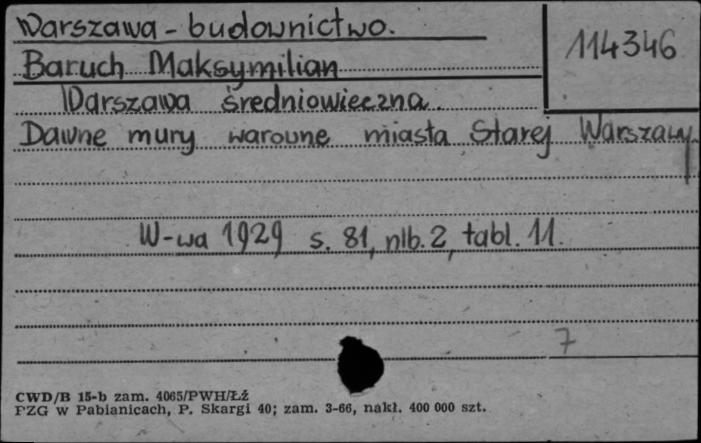 Warszawa - budownictwo.
114346
Baruch Maksymilian
Warszawa średniowieczna.
Dawne mury warowne miasta Starej Warszawy.
W-wa 1929 s. 81, nlb. 2, tabl. 11.
7
CWD/B 15-b zam. 4065/PWH/Łź
PZG w Pabianicach, P. Skargi 40; zam. 3-66, nakł. 400 000 szt.